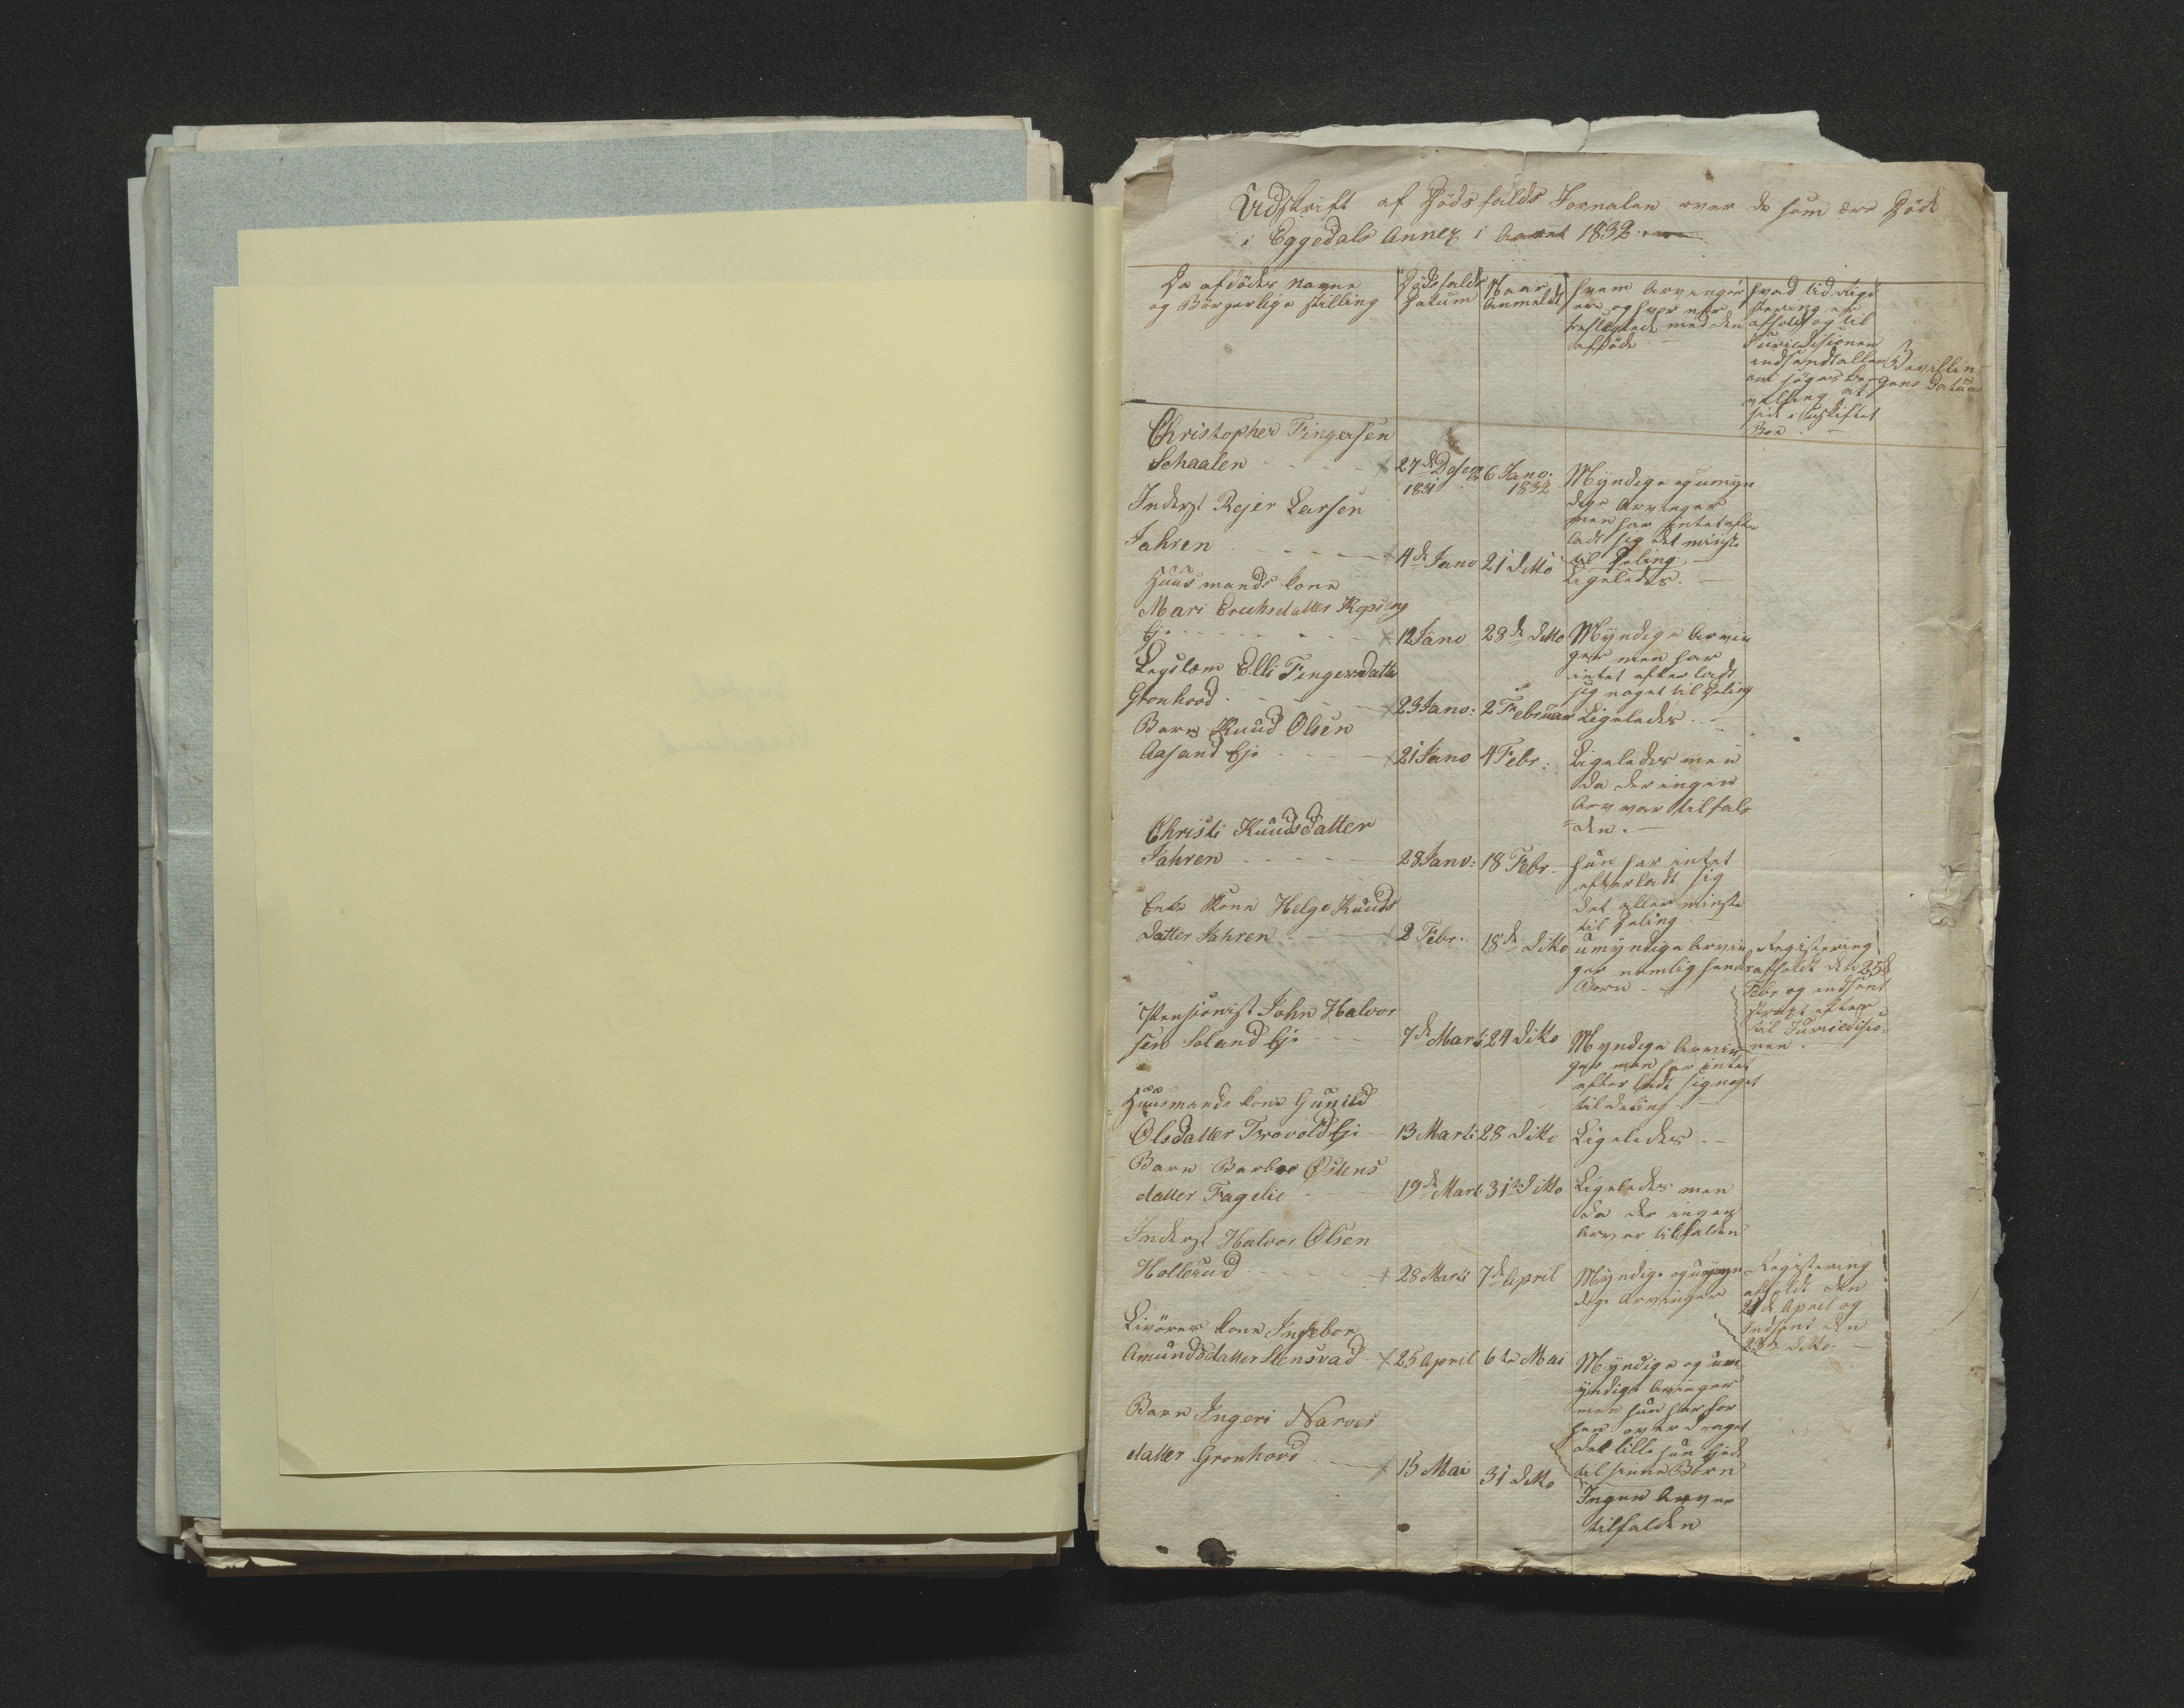 Udskrift af Dödsfalds Jornalen over de som ere Döde
i Eggedals Annex i Aaret 1832
De afdödes Navne
og Börgerlige stilling
Dödsfalds
Datum
Naar
Anmeldt
hvem Arvinger
er, og hvor nær
beslegtede med den
afdöde
hvad tid Regi
stering er
afholdt og til
Juridisionen
indsendt eller
om söges be-
velling at
side i uskiftet
Boe
Bevillin
gens Datum
Christopher Fingersen
Schaalen
27de Desem
1831
6 Jano:
1832
Myndige og umyn
dige Arvinger
men har intet efter
ladt sig det minste
til Deling
Inderst Rejer Larsen
Jahren
4de Jano
21 ditto
Ligeledes
Huusmands kone
Mari Erichsdatter Kopseng
Eje
12 Jano
28de ditto
Myndige Arvin
ger men har
intet efterladt
sig noget til Deling
Legslem Elli Fingersdatter
Gronhovd
23 Jano:
2 Februar
Ligeledes
Barn Knud Olsen
Aasand Eje
21 Jano
4 Febr:
Ligeledes men
da der ingen
Arv var tilfal
den
Christi Knudsdatter
Jahren
28 Jano:
18 Febr
hun har intet
efterladt sig
det aller minste
til Deling
Enke Kone Helge Knuds
datter Jahren
2 Febr.
18de ditto
umyndige Arvin
ger nemlig hendes
Börn
Registering
afholdt den 25de
Febr og indsent
strakt efter
til Juridisio-
nen
Pensionist John Halvor
sen Soland Eje
7de Marti
24 ditto
Myndige Arvin
ger men har intet
efter ladt sig noget
til deling
Huusmands kone Gunild
Olsdatter Trovold Eje
13 Marti
28 ditto
Ligeledes
Barn Barbro Østens
datter Fagelie
19de Mart
31te ditto
Ligeledes men
da der ingen
Arv er tilfalden
Inderst Halvor Olsen
Hollerud
28 Marti
7de April
Myndige og umyn
dige Arvinger
Registering
afholdt den
21de April og
Indsent den
23de ditto
Livöres kone Ingebor
Amundsdatter Stensrad
25 April
6te Mai
Myndige og um
yndige Arvinger
men hun har for
hen overdraget
det lille hun Ejed
til sinne Börn
Barn Ingeri Narves
datter Gronhovd
15 Mai
31 ditto
Ingen Arv er
tilfalden